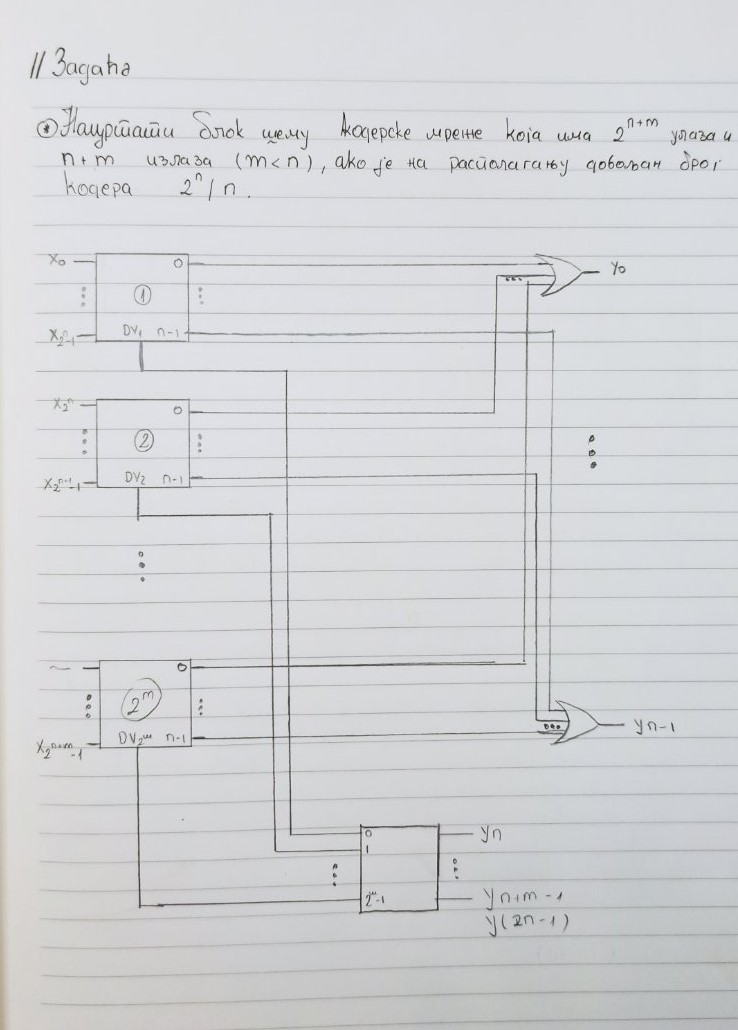 // Задаћа
* Нацртати блок шему кодерске мреже која има 2^(n+m) улаза и
n+m излаза (m<n), ако је на располагању довољан број
кодера 2^n/n.
X0 0 y0
1
X2^n-1 DV1 n-1
X2^n 0
2
X2^(n+1)-1 DV2 n-1
~ 0
2^m
X2^(n+m)-1 DV2^m n-1 yn-1
0 yn
1
2^m-1 yn+m-1
y(2n-1)